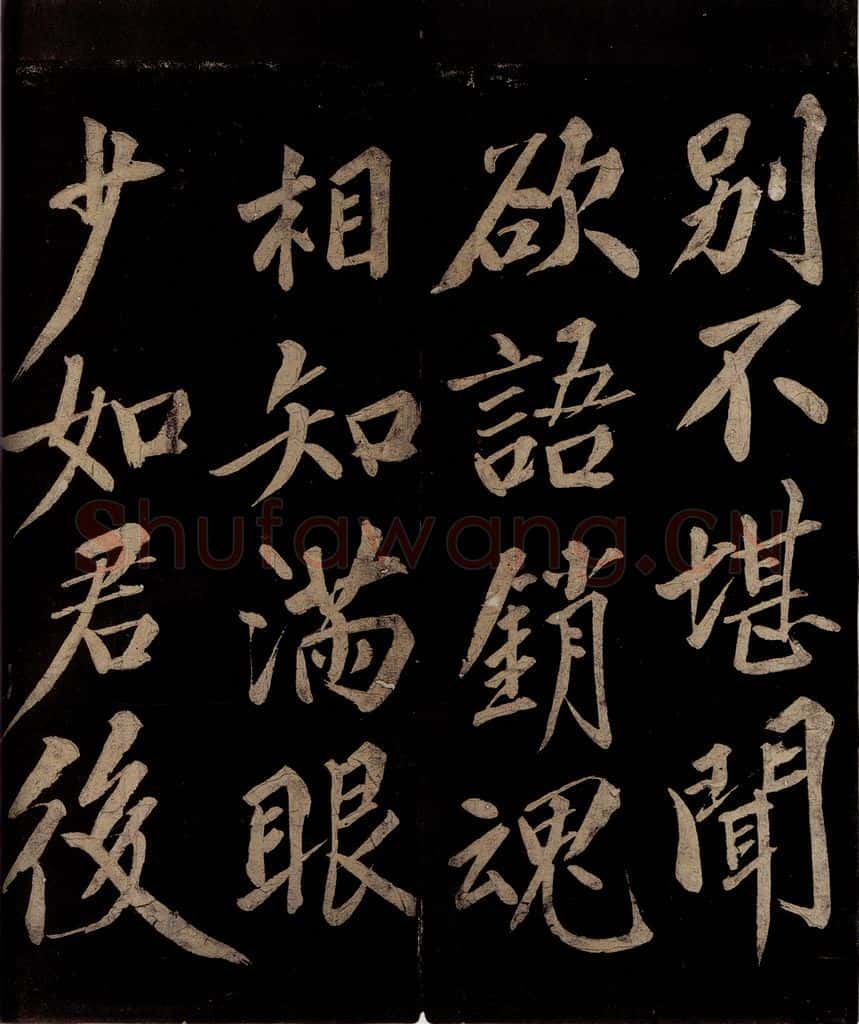 别不堪聞
欲語銷魂
相知滿眼
少如君後
Shufawang.cn